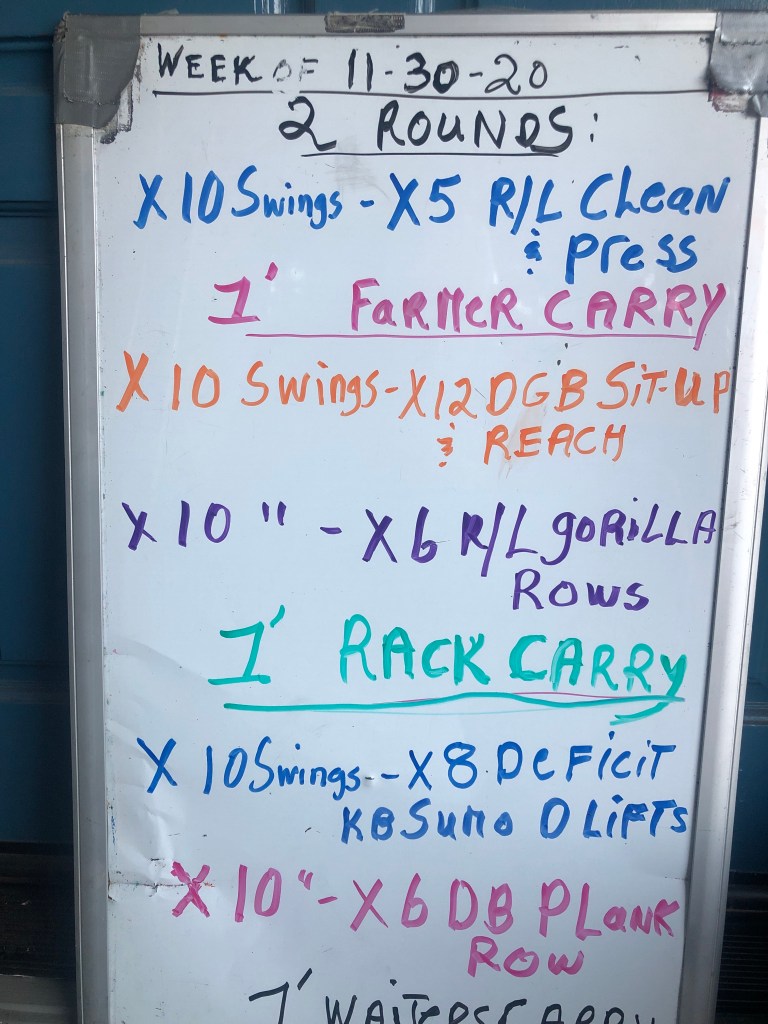 WEEK OF 11-30-20
2 ROUNDS:
X 10 Swings - X5 R/L CLEAN
& PRESS
1' FARMER CARRY
X 10 Swings - X12 DGB SIT-UP
& REACH
X 10 " - X6 R/L GORILLA
ROWS
1' RACK CARRY
X 10 Swings - X 8 DEFICIT
KB SUMO D LIFTS
X 10 " - X 6 DB PLANK
ROW
1' WAITERS CARRY